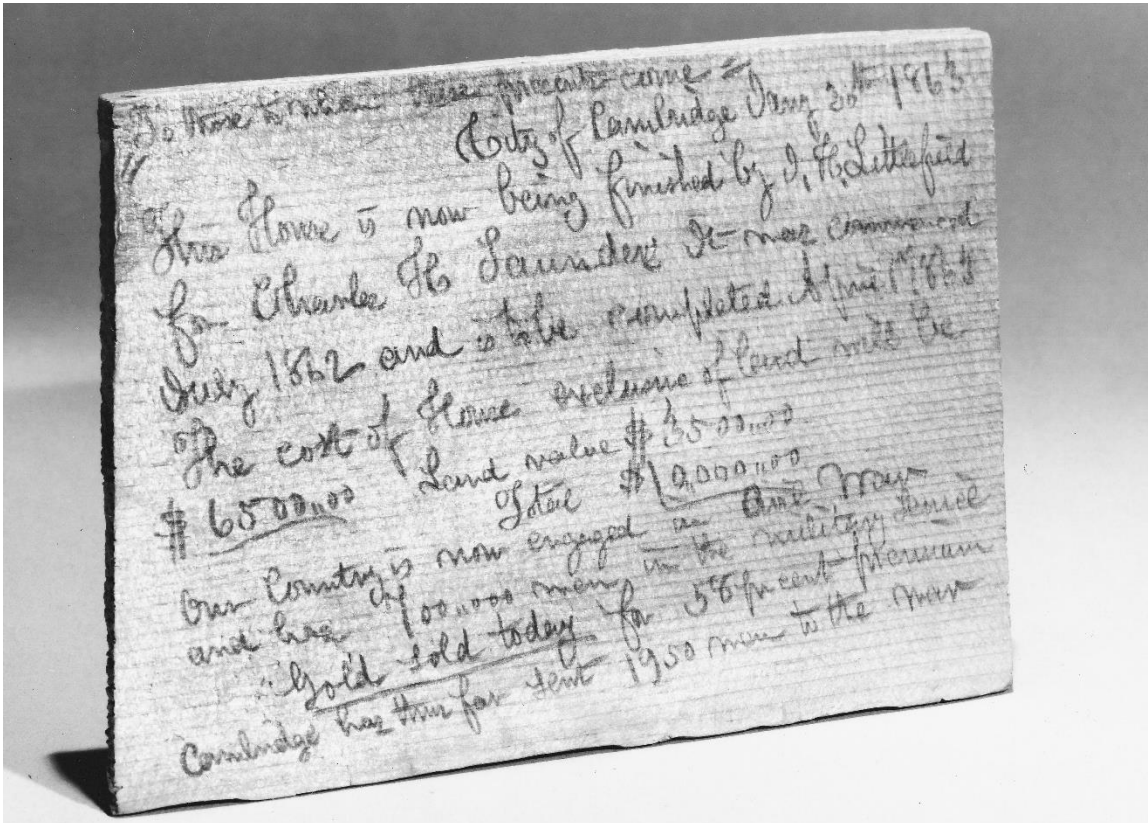 To those to whom these presents come =
" City of Cambridge Jany 30th 1863
This House is now being finished by I. H. Littlefield
for Charles H Saunders It was commenced
July 1862 and is to be completed April 1st 1863
The cost of House exclusive of land will be
$ 6500,,00 Land value $3500,,00
Total $10,000,,00
Our Country is now engaged in War
and has 900,,000 men in the military service
Gold sold today for 58 pr cent premium
Cambridge has thus far sent 1950 men to the war